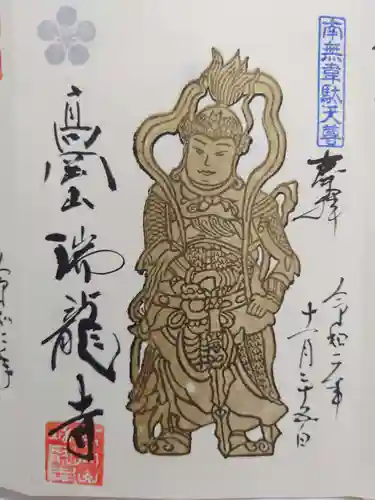 南無韋駄天尊
奉拝
令和二年
十一月二十五日
高岡山
瑞龍寺